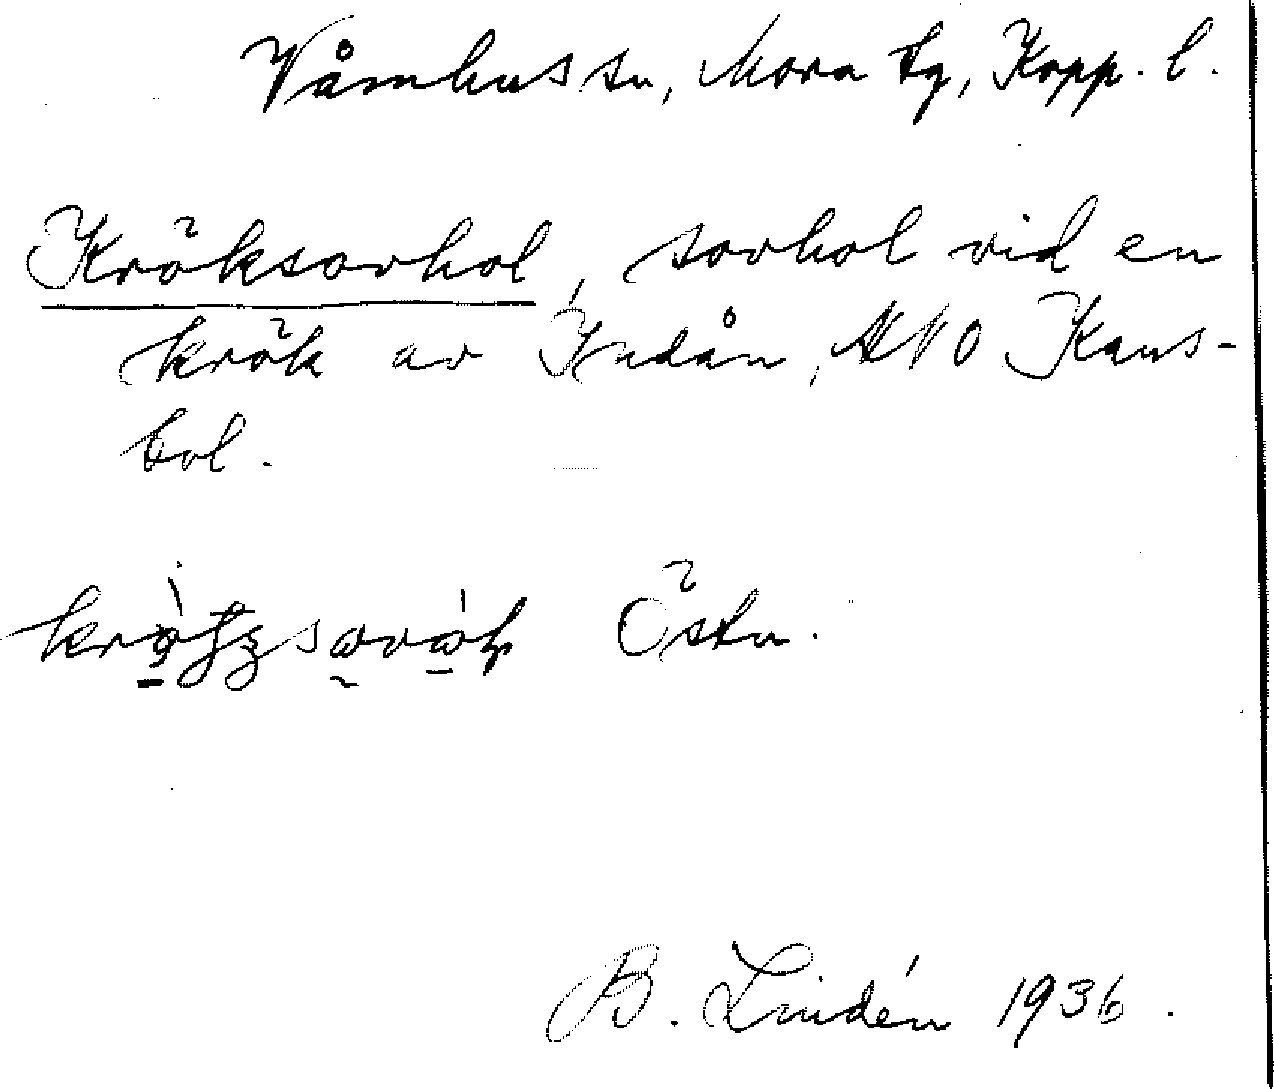 Våmhus sn, Mora tg, Kopp. l.
Kröksovhol, sovhol vid en
krök av Indån, NNO Kans-
bol.
Östn.
B. Lindén 1936.